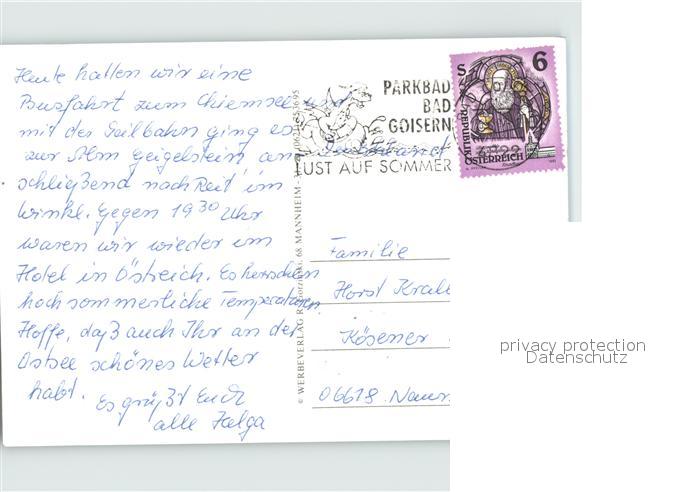 Heute hatten wir eine
Busfahrt zum Chiemsee und
mit der Seilbahn ging es
zur Alm Geigelstein, an-
schließend nach Reit im
Winkl. Gegen 19 30 Uhr
waren wir wieder im
Hotel in Östreich. Es herrschen
hochsommerliche Temperaturen.
Hoffe, daß auch Ihr an der
Ostsee schönes Wetter
habt. Es grüßt Euch
alle Helga
PARKBAD
BAD
GOISERN
LUST AUF SOMMER
S 6
REPUBLIK
ÖSTERREICH
© WERBEVERLAG 68 MANNHEIM
Familie
Horst
Kösener
06618 Naum
privacy protection
Datenschutz